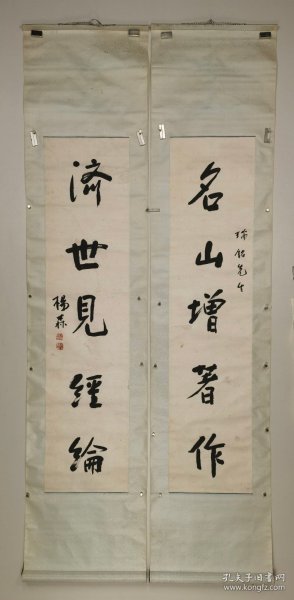 名山增著作
先生
濟世見經綸
楊森
孔夫子旧书网
www.kongfz.com